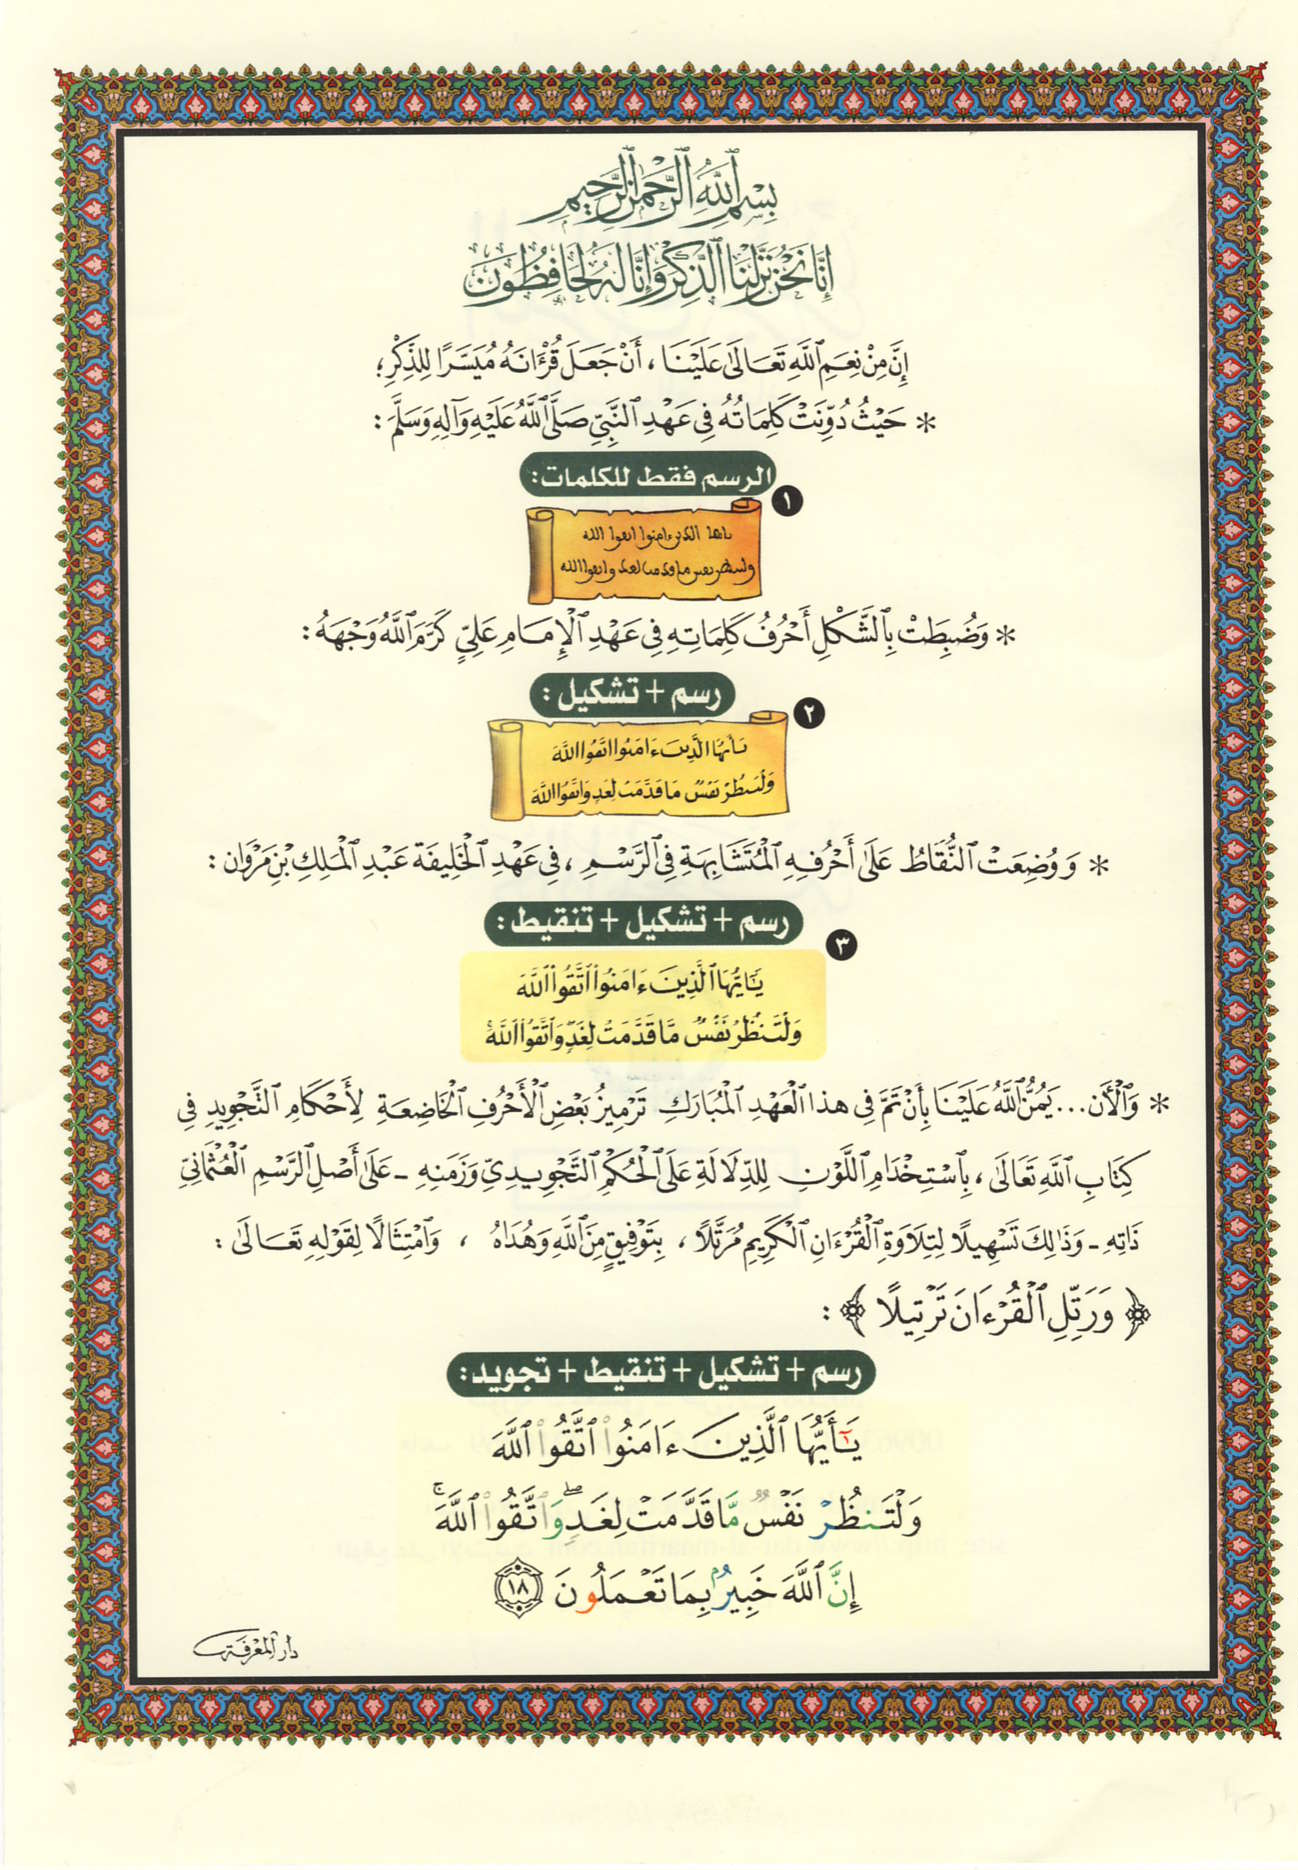 بِسْمِ ٱللَّهِ ٱلرَّحْمَٰنِ ٱلرَّحِيمِ
إِنَّا نَحْنُ نَزَّلْنَا ٱلذِّكْرَ وَإِنَّا لَهُ لَحَافِظُونَ
إِنَّ مِنْ نِعَمِ ٱللَّهِ تَعَالَىٰ عَلَيْنَا ، أَنْ جَعَلَ قُرْءَانَهُ مُيَسَّرًا لِلذِّكْرِ ؛
* حَيْثُ دُوِّنَتْ كَلِمَاتُهُ فِي عَهْدِ ٱلنَّبِيِّ صَلَّى ٱللَّهُ عَلَيْهِ وَآلِهِ وَسَلَّمَ :
الرسم فقط للكلمات:
١
* وَضُبِطَتْ بِٱلشَّكْلِ أَحْرُفُ كَلِمَاتِهِ فِي عَهْدِ ٱلْإِمَامِ عَلِيٍّ كَرَّمَ ٱللَّهُ وَجْهَهُ :
رسم + تشكيل :
٢
* وَوُضِعَتْ ٱلنُّقَاطُ عَلَىٰ أَحْرُفِهِ ٱلْمُتَشَابِهَةِ فِي ٱلرَّسْمِ ، فِي عَهْدِ ٱلْخَلِيفَة عَبْدِ ٱلْمَلِكِ بْنِ مَرْوَان :
رسم + تشكيل + تنقيط :
٣
يَٰٓأَيُّهَا ٱلَّذِينَ ءَامَنُوا۟ ٱتَّقُوا۟ ٱللَّهَ
وَلْتَنظُرْ نَفْسٌ مَّا قَدَّمَتْ لِغَدٍ وَٱتَّقُوا۟ ٱللَّهَ
* وَٱلْأَن... يَمُنُّ ٱللَّهُ عَلَيْنَا بِأَنْ تَمَّ فِي هذا ٱلْعَهْدِ ٱلْمُبَارَكِ تَرْمِيزُ بَعْضِ ٱلْأَحْرُفِ ٱلْخَاضِعَةِ لِأَحْكَامِ ٱلتَّجْوِيدِ فِي
كِتَابِ ٱللَّهِ تَعَالَىٰ ، بِٱسْتِخْدَامِ ٱللَّوْنِ لِلدِّلَالَةِ عَلَىٰ ٱلْحُكْمِ ٱلتَّجْوِيدِيِّ وَزَمَنِهِ - عَلَىٰ أَصْلِ ٱلرَّسْمِ ٱلْعُثْمَانِيِّ
ذَاتِهِ - وَذَٰلِكَ تَسْهِيلًا لِتِلَاوَةِ ٱلْقُرْءَانِ ٱلْكَرِيمِ مُرَتَّلًا ، بِتَوْفِيقٍ مِنَ ٱللَّهِ وَهُدَاهُ ، وَٱمْتِثَالًا لِقَوْلِهِ تَعَالَىٰ :
﴿ وَرَتِّلِ ٱلْقُرْءَانَ تَرْتِيلًا ﴾ :
رسم + تشكيل + تنقيط + تجويد:
يَٰٓأَيُّهَا ٱلَّذِينَ ءَامَنُوا۟ ٱتَّقُوا۟ ٱللَّهَ
وَلْتَنظُرْ نَفْسٌ مَّا قَدَّمَتْ لِغَدٍ ۖ وَٱتَّقُوا۟ ٱللَّهَ ۚ
إِنَّ ٱللَّهَ خَبِيرٌۢ بِمَا تَعْمَلُونَ ١٨
دار المعرفة